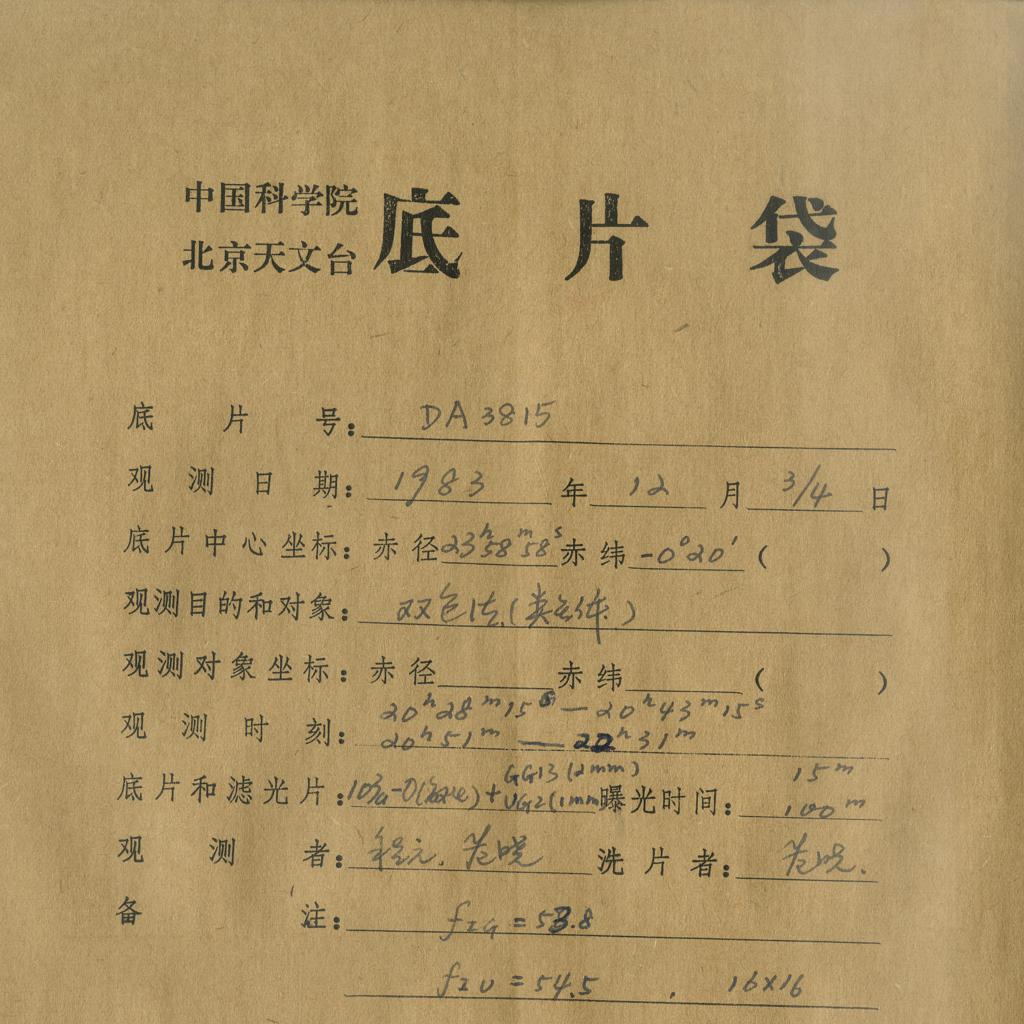 中国科学院
北京天文台
底片袋
底片号: DA 3815
观测日期: 1983 年 12 月 3/4 日
底片中心坐标: 赤径 23ʰ58ᵐ58ˢ 赤纬 -0°20′ ( )
观测目的和对象: 双色法(类星体)
观测对象坐标: 赤径 赤纬 ( )
20ʰ28ᵐ15ˢ — 20ʰ43ᵐ15ˢ
观测时刻: 20ʰ51ᵐ — 22ʰ31ᵐ
GG13 (2mm) 15ᵐ
底片和滤光片: 103a-O + UG2 (1mm 曝光时间: 100ᵐ
观测者: 洗片者:
备注: f_IG = 53.8
f_IU = 54.5 . 16×16